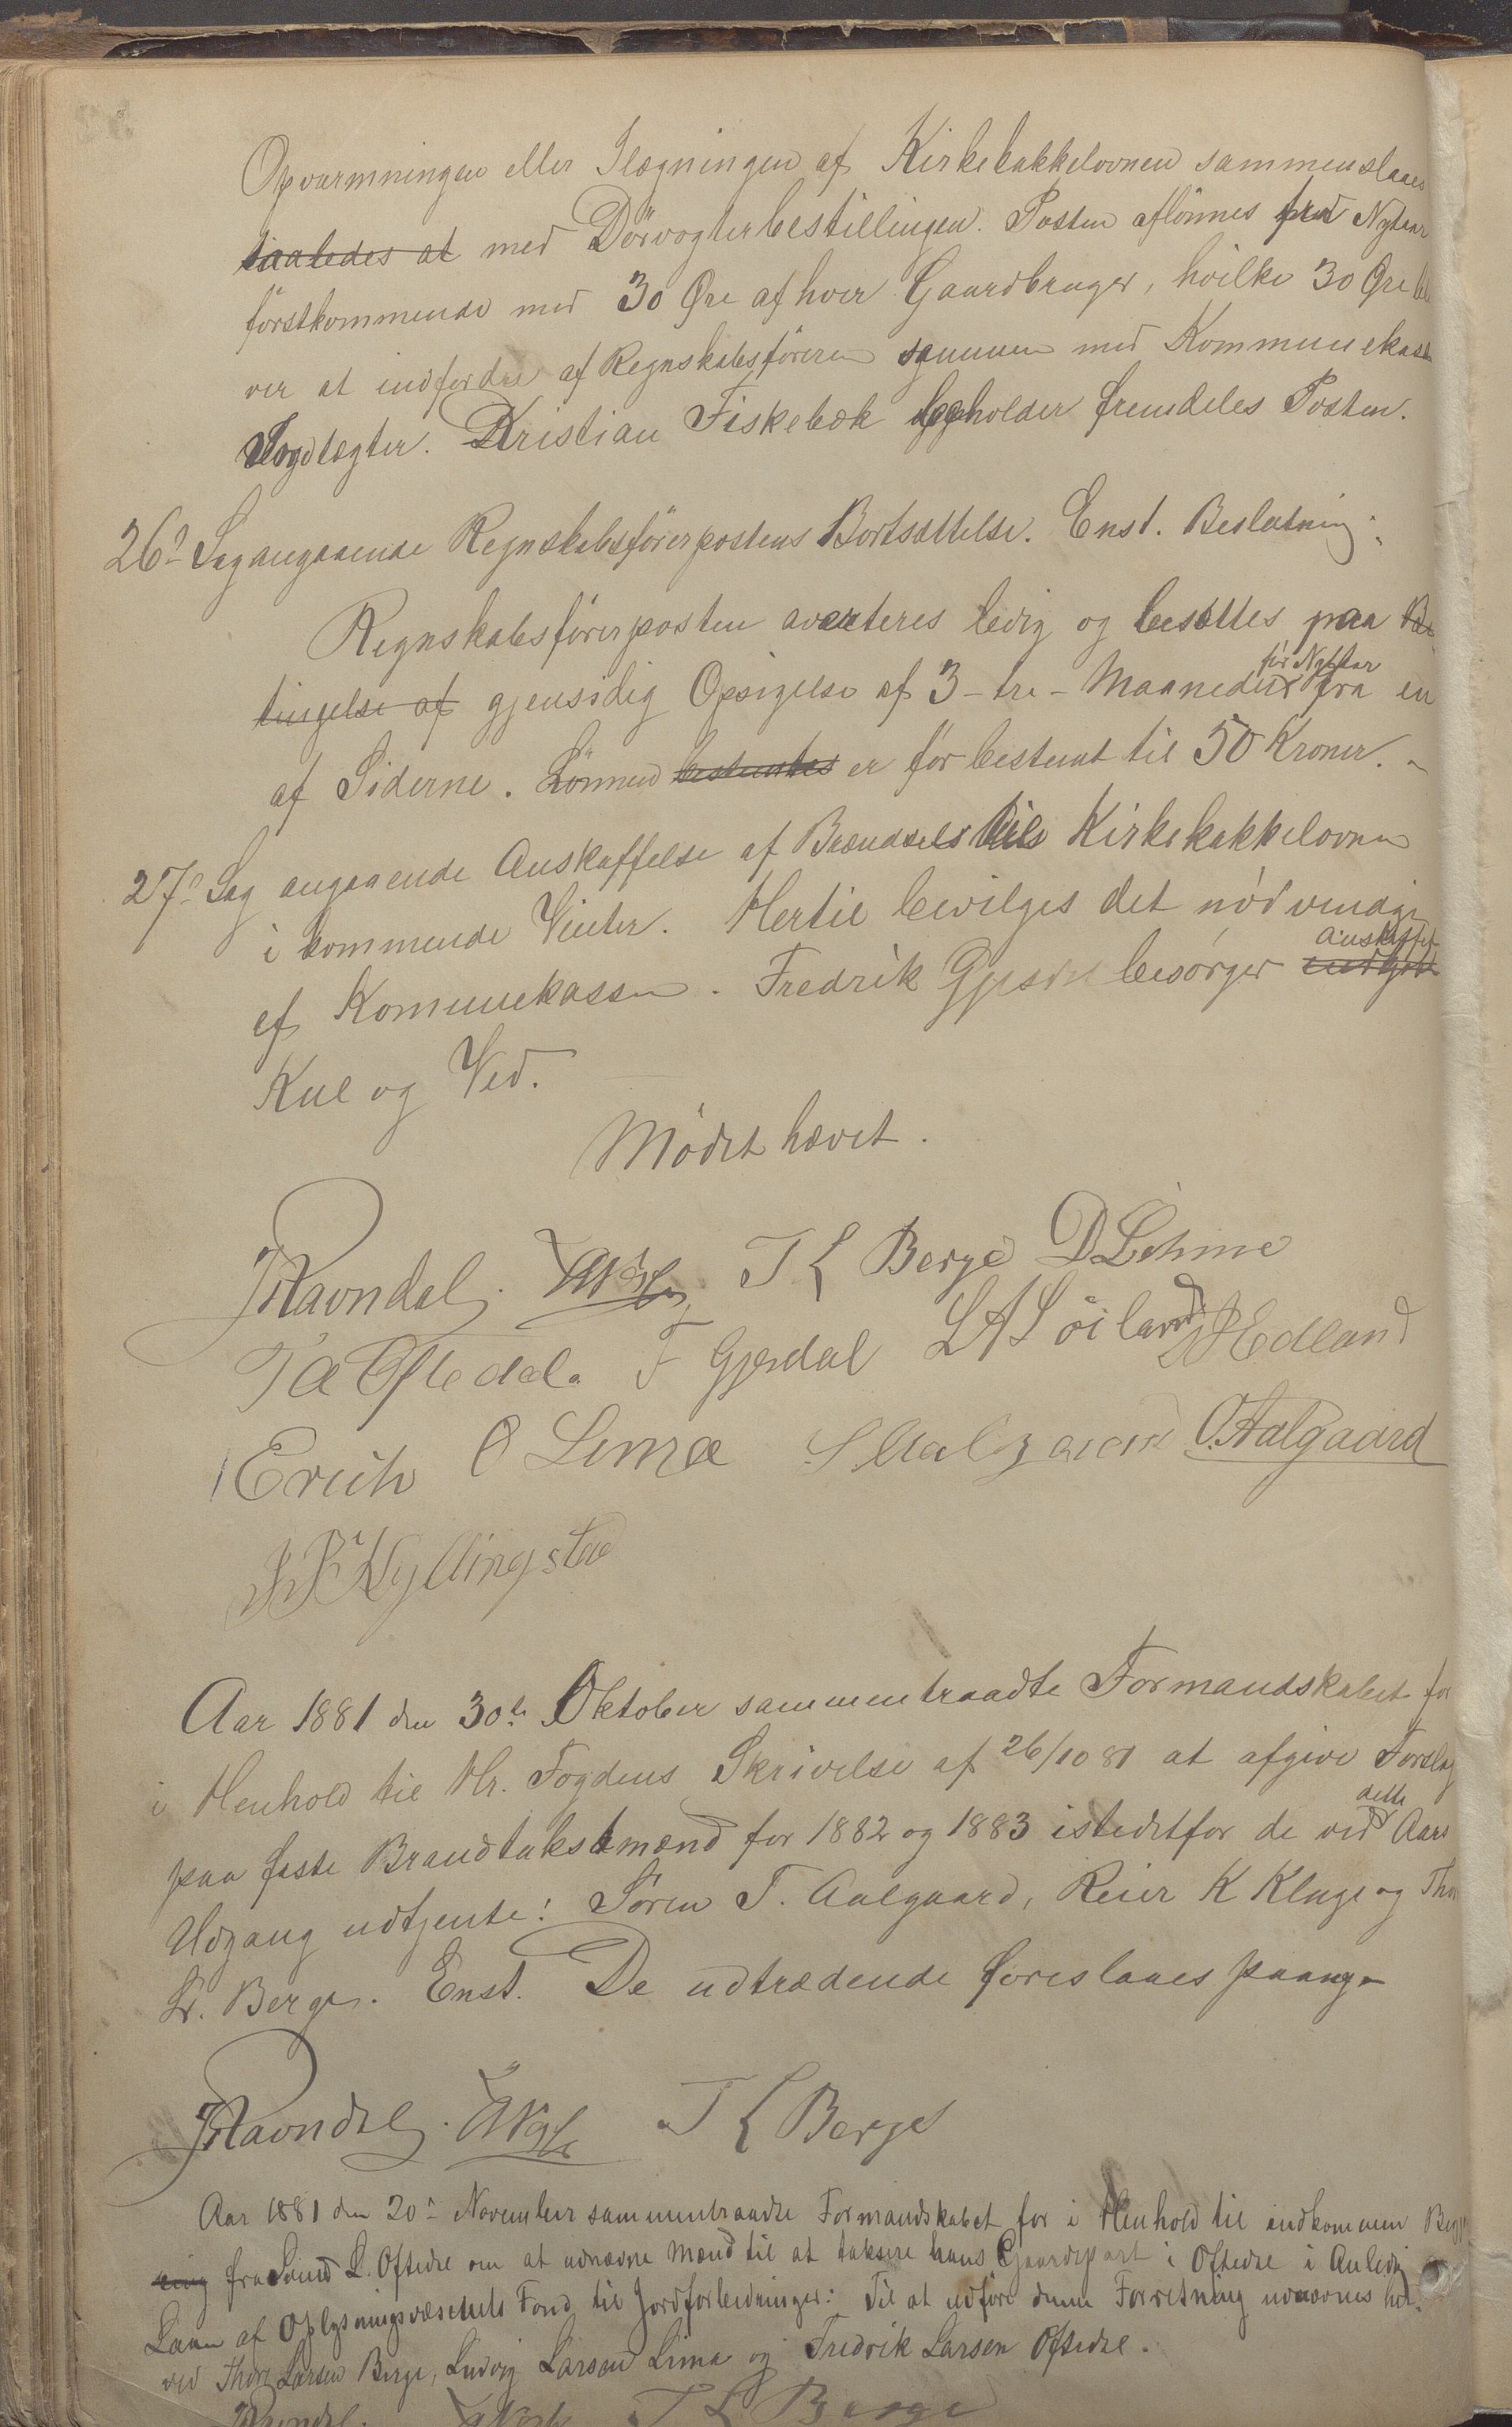 Opvarmningen eller Ilægningen af Kirkekakkelovnen sammenslaaes
saaledes at med Dörvogterbestillingen. Posten aflönnes fra Nytaar
förstkommende med 30 Øre af hver Gaardbruger, hvilke 30 Øre bli
ver at indfordre af Regnskabsföreren sammen med Kommunekasse
Kristian Fiskebæk beholder fremdeles Posten.
26? Sag angaaende Regnskabsförerpostens Bortsættelse. Enst. Beslutning:
Regnskabsförerposten averteres ledig og besættes paa Be
tingelse af gjensidig Opsigelse af 3 - tre - Maaneder fra en
før Nytaar
af Siderne. Lönnen bestemtes er før bestemt til 50 Kroner. -
27? Sag angaaende Anskaffelse af Brændsel til Kirkekakkelovnen
i kommende Vinter. Hertil bevilges det nödvendige
anskaffet
af Kommunekassen. Fredrik Gjesdal besörger indkjøbt
Kul og Ved.
Mödet hævet.
Ravndal. T L Berge D Lehme
T A Oftedal. F Gjesdal L A Söiland Edland
Erich O Lima S Aalgaard O. Aalgaard
Kyllingstad
Aar 1881 den 30te Oktober sammentraadte Formandskabet for
i Henhold til Hr. Fogdens Skrivelse af 26/10 81 at afgive Forslag
dette
paa faste Brandtakstmænd for 1882 og 1883 istedetfor de ved Aars
Udgang udtjente: Sören T. Aalgaard, Reier K Kluge og Thor
L. Berge. Enst. De udtrædende foreslaaes paany -
Ravndal. T L Berge
Aar 1881 den 20? November sammentraadte Formandskabet for i Henhold til indkommen Begj
ring fra Svend L. Oftedal om at udnævne Mænd til at taksere hans Gaardepart i Oftedal i Anledng
Laan af Oplysningsvæsenets Fond til Jordforbedringer: Til at udföre denne Forretning udnævnes her
ved Thore Larsen Berge, Ludvig Larsen Lima og Fredrik Larsen Oftedal.
Ravndal. T L Berge